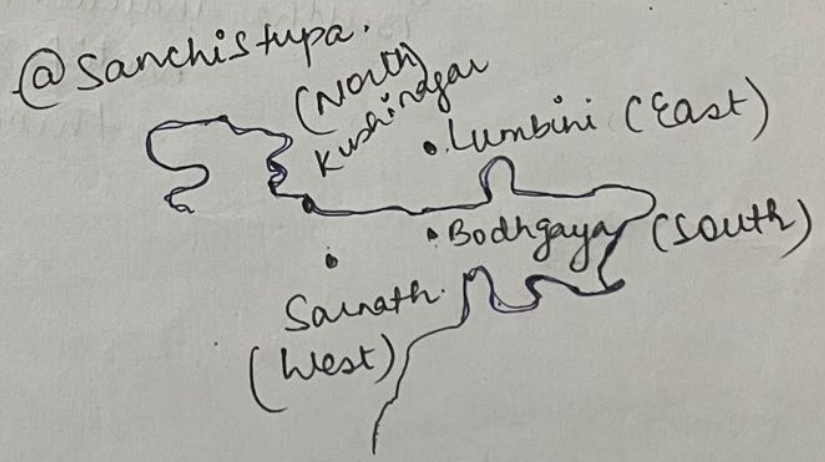 @ Sanchistupa.
(North)
Kushinagar
Lumbini (East)
Bodhgaya (South)
Sarnath.
(West)